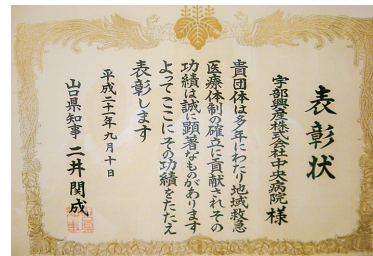 表彰状
宇部興産株式会社中央病院 様
貴団体は多年にわたり地域救急
医療体制の確立に貢献されその
功績は誠に顕著なものがあります
よってここにその功績をたたえ
表彰します
平成二十一年九月十日
山口県知事 二井関成